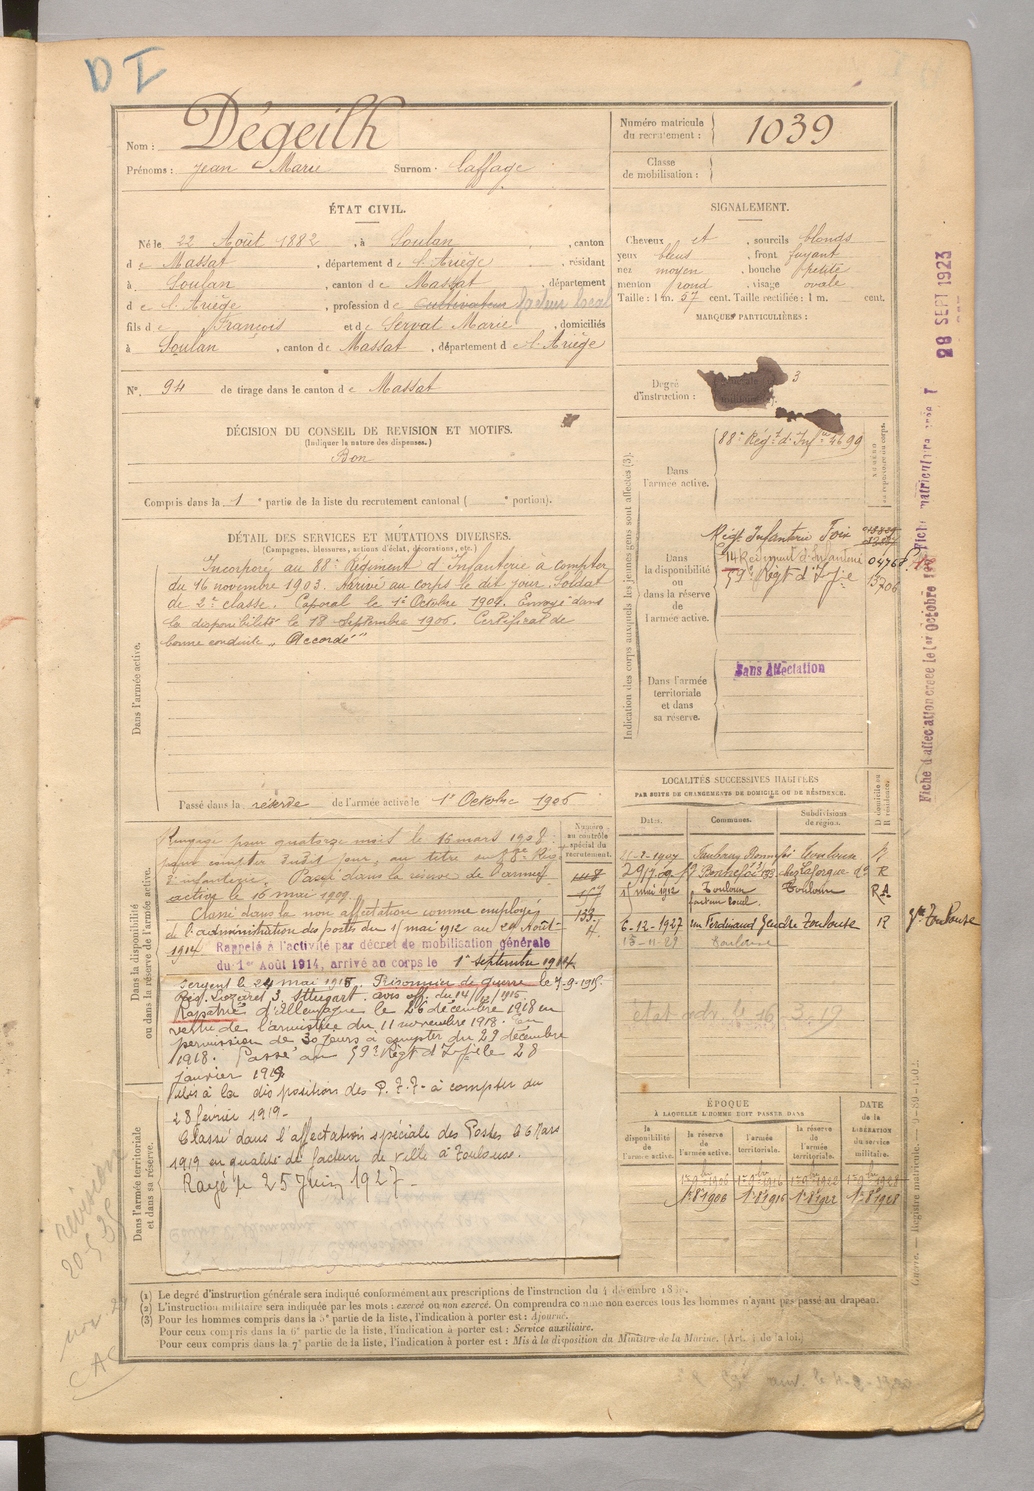 D I
Nom : Dégeilh
Prénoms : Jean Marie Surnom : Laffage
Numéro matricule du recrutement : 1039
Classe de mobilisation :
ÉTAT CIVIL.
Né le 22 Août 1882, à Soulan, canton
de Massat, département de l'Ariège, résidant
à Soulan, canton de Massat, département
de l'Ariège, profession de Cultivateur facteur local
fils de François et de Servat Marie, domiciliés
à Soulan, canton de Massat, département de l'Ariège
N° 94 de tirage dans le canton de Massat
SIGNALEMENT.
Cheveux et, sourcils blonds
yeux bleus, front fuyant
nez moyen, bouche petite
menton rond, visage ovale
Taille : 1 m. 57 cent. Taille rectifiée : 1 m. cent.
MARQUES PARTICULIÈRES :
Degré d'instruction : 3
DÉCISION DU CONSEIL DE REVISION ET MOTIFS.
(Indiquer la nature des dispenses.)
Bon
Compris dans la 1e partie de la liste du recrutement cantonal ( e portion).
DÉTAIL DES SERVICES ET MUTATIONS DIVERSES.
(Campagnes, blessures, actions d'éclat, décorations, etc.)
Dans l'armée active.
Incorporé au 88e Régiment d'Infanterie à compter
du 16 novembre 1903. Arrivé au corps le dit jour. Soldat
de 2e classe. Caporal le 1er Octobre 1904. Envoyé dans
la disponibilité le 18 Septembre 1906. Certificat de
bonne conduite "Accordé"
Passé dans la réserve de l'armée active le 1er Octobre 1906
Dans la disponibilité ou dans la réserve de l'armée active.
Rengagé pour quatorze mois le 16 mars 1908
pour compter dudit jour, au titre du 88e Rég
d'infanterie. Passé dans la réserve de l'armée
active le 16 mai 1909.
Classé dans la non affectation comme employé
de l'administration des postes du 15 mai 1912 au 24 Août
1914 Rappelé à l'activité par décret de mobilisation générale
du 1er Août 1914, arrivé au corps le 1er septembre 1914
Sergent le 24 mai 1915. Prisonnier de guerre le 7-9-1915.
avis off. du 14/11/1915
Rapatrié d'Allemagne le 26 décembre 1918 en
vertu de l'armistice du 11 novembre 1918. En
permission de 30 jours à compter du 29 décembre
1918. Passé au 59e Régt d'Inf le 28
janvier 1919
Mis à la disposition des P.T.T. à compter du
28 février 1919-
Classé dans l'affectation spéciale des Postes 26 Mars
1919 en qualité de facteur de ville à Toulouse.
Rayé le 25 Juin 1927-
Dans l'armée territoriale et dans sa réserve.
Numéro au contrôle spécial du recrutement.
148
157
133
4
Indication des corps auxquels les jeunes gens sont affectés (3).
NUMÉRO au répertoire du corps.
Dans l'armée active.
88e Régt d'Infie 4699
Dans la disponibilité ou dans la réserve de l'armée active.
Régt Infanterie Foix
14 Régiment d'Infanterie 04768
59e Régt d'Infie 13706
Dans l'armée territoriale et dans sa réserve.
Sans Affectation
LOCALITÉS SUCCESSIVES HABITÉES
PAR SUITE DE CHANGEMENTS DE DOMICILE OU DE RÉSIDENCE.
Dates. Communes. Subdivisions de région. D domicile ou R résidence.
Toulouse R
15 mai 1912 Toulouse Toulouse R
facteur local.
6-12-1927 rue Ferdinand Toulouse R
13-11-29 Toulouse
Toulouse
ÉPOQUE
À LAQUELLE L'HOMME DOIT PASSER DANS
la disponibilité de l'armée active. la réserve de l'armée active. l'armée territoriale. la réserve de l'armée territoriale.
DATE de la LIBÉRATION du service militaire.
1er 8bre 1906 1er 8bre 1916 1er 8bre 1922 1er 8bre 1928
(1) Le degré d'instruction générale sera indiqué conformément aux prescriptions de l'instruction du 4 décembre
(2) L'instruction militaire sera indiquée par les mots : exercé ou non exercé. On comprendra comme non exercés tous les hommes n'ayant pas passé au drapeau.
(3) Pour les hommes compris dans la 5e partie de la liste, l'indication à porter est : Ajourné.
Pour ceux compris dans la 6e partie de la liste, l'indication à porter est : Service auxiliaire.
Pour ceux compris dans la 7e partie de la liste, l'indication à porter est : Mis à la disposition du Ministre de la Marine. (Art. 4 de la loi.)
28 SEPT 1923
revision